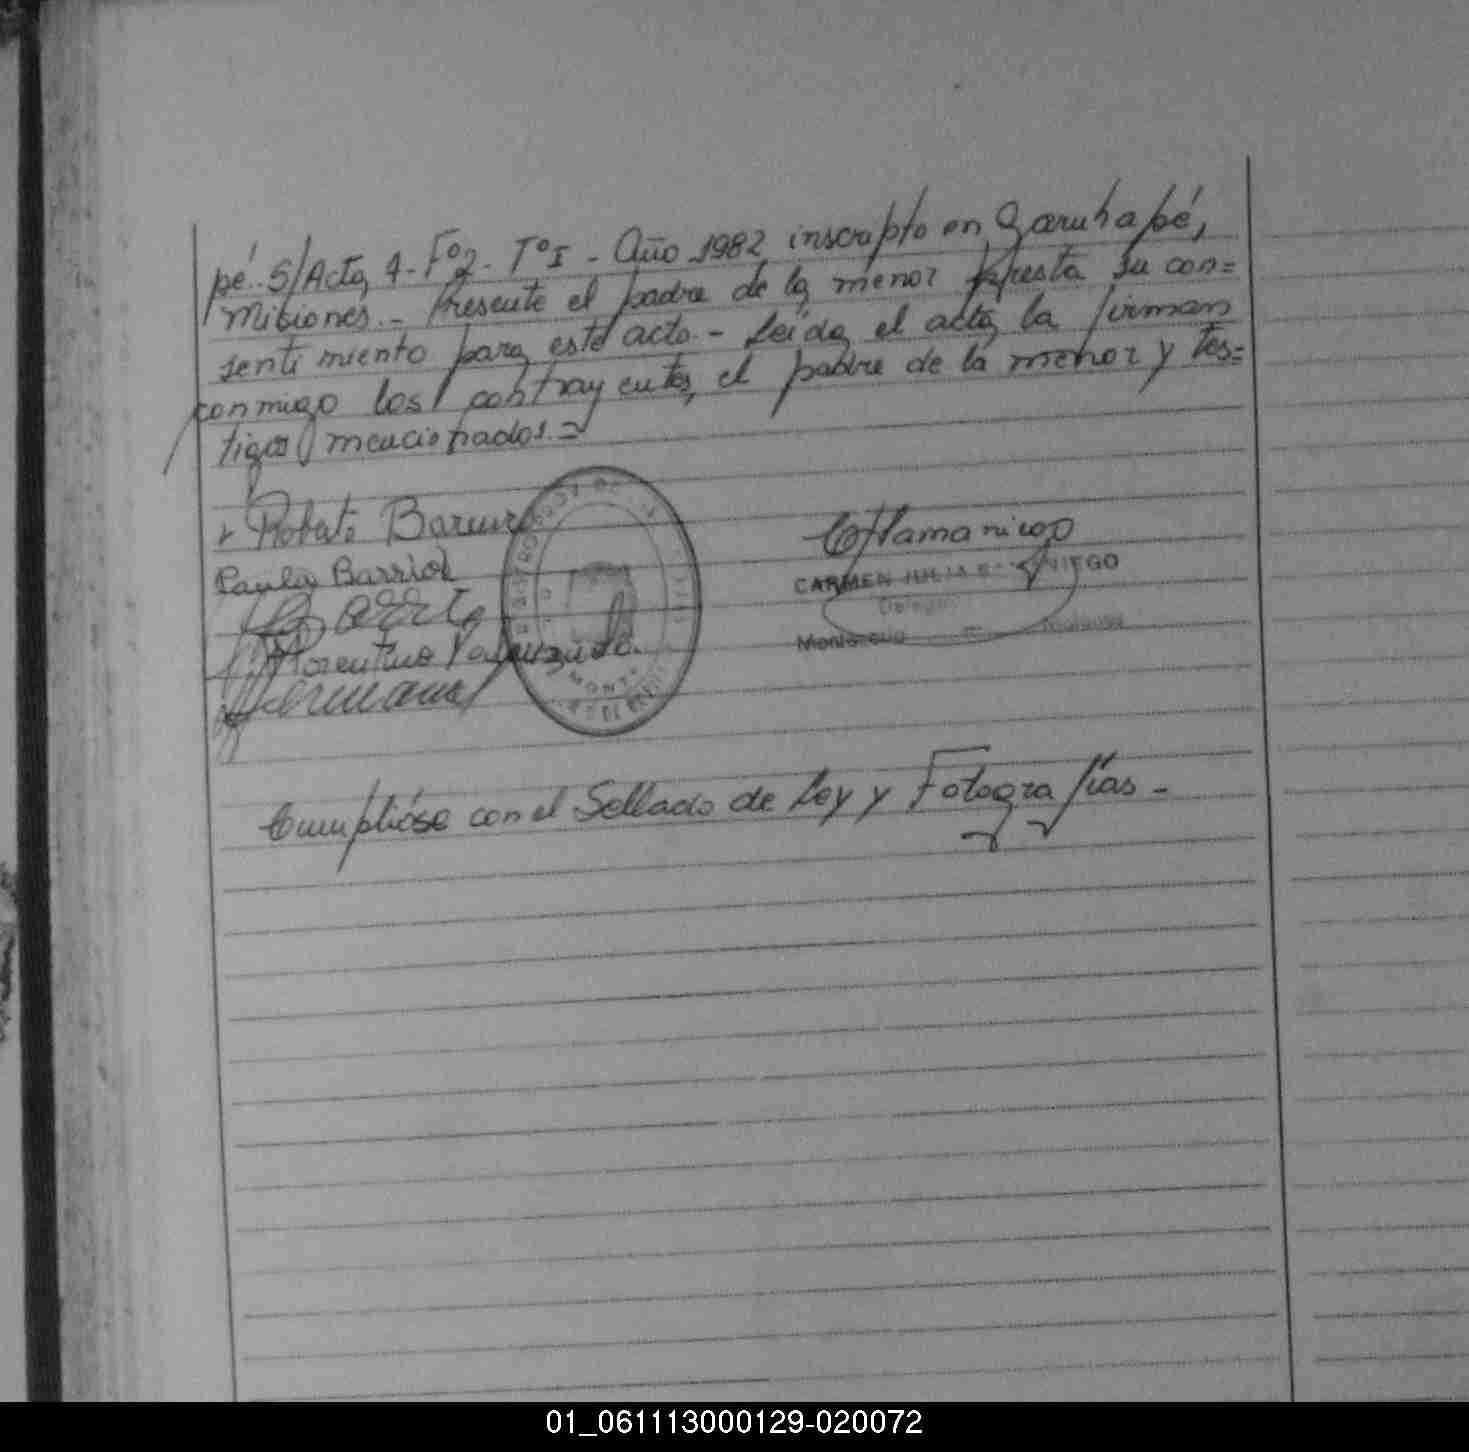 pé.. S/Acta, 4 - Fº2 - TºI - Año 1982, inscripto en Garuhapé,
Misiones. - Presente el padre de la menor presta su con=
sentimiento para este acto. - Leída el acta, la firman
conmigo los contrayentes, el padre de la menor y tes=
tigos mencionados. =
Roberto
Paula Barrios
Florentino
CARMEN JULIA
Cumplióse con el Sellado de Ley y Fotografías -
01_061113000129-020072